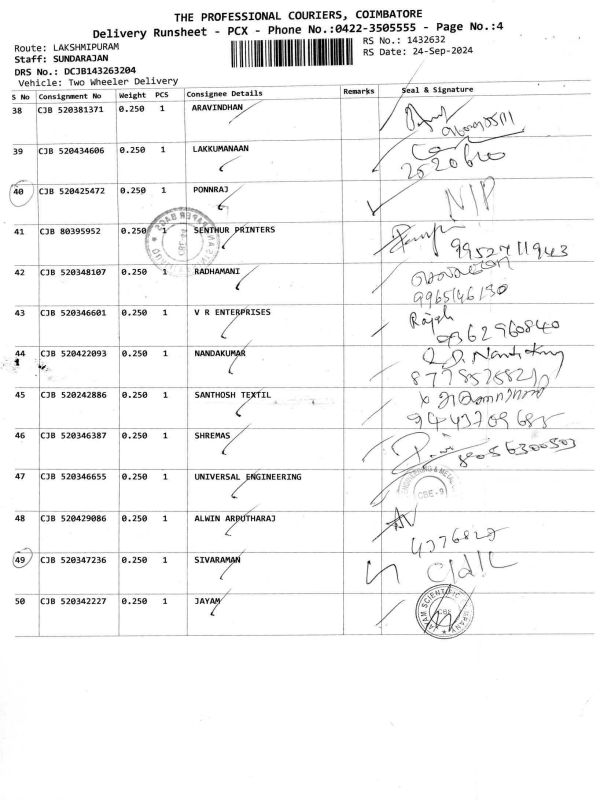 THE PROFESSIONAL COURIERS, COIMBATORE
Delivery Runsheet - PCX - Phone No.:0422-3505555 - Page No.:4
Route: LAKSHMIPURAM
RS No.: 1432632
Staff: SUNDARAJAN
RS Date: 24-Sep-2024
DRS No.: DCJB143263204
Vehicle: Two Wheeler Delivery
S No Consignment No Weight PCS Consignee Details Remarks Seal & Signature
38 CJB 520381371 0.250 1 ARAVINDHAN
39 CJB 520434606 0.250 1 LAKKUMANAAN
2520600
40 CJB 520425472 0.250 1 PONNRAJ N/P
41 CJB 80395952 0.250 1 SENTHUR PRINTERS
9952711943
42 CJB 520348107 0.250 1 RADHAMANI
9965146130
43 CJB 520346601 0.250 1 V R ENTERPRISES Rajesh
9362960840
44 CJB 520422093 0.250 1 NANDAKUMAR
1
45 CJB 520242886 0.250 1 SANTHOSH TEXTIL
9443709685
46 CJB 520346387 0.250 1 SHREMAS
8056300503
47 CJB 520346655 0.250 1 UNIVERSAL ENGINEERING
CBE-9
48 CJB 520429086 0.250 1 ALWIN ARPUTHARAJ
4376827
49 CJB 520347236 0.250 1 SIVARAMAN
50 CJB 520342227 0.250 1 JAYAM